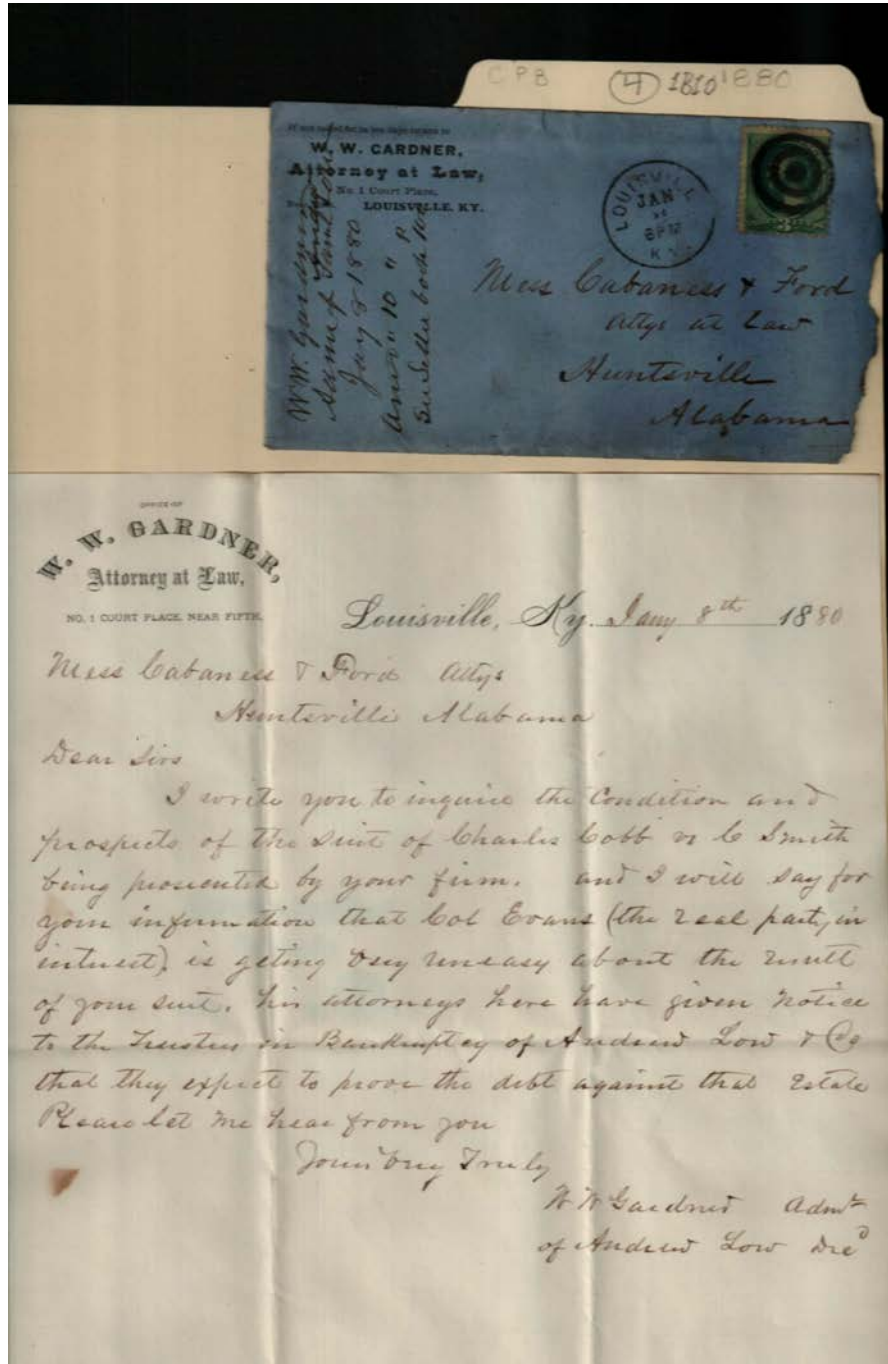 CPB (4) 1810 1880
If not called for in ten days return to
W. W. GARDNER,
Attorney at Law,
No. 1 Court Place,
LOUISVILLE, KY.
LOUISVILLE
JAN
6PM
KY
Mess Cabaness & Ford
Attys at Law
Huntsville
Alabama
W W. Gardner
Jany 8 1880
10 "
OFFICE OF
W. W. GARDNER,
Attorney at Law,
NO. 1 COURT PLACE, NEAR FIFTH,
Louisville, Ky. Jany 8th 1880
Mess Cabaness & Ford Attys
Huntsville Alabama
Dear Sirs
I write you to inquire the Condition and
prospects of the Suit of Charles Cobb vs C Smith
being prosecuted by your firm. and I will say for
your information that Col Evans (the real party in
interest) is geting very uneasy about the result
of your suit. his attorneys here have given notice
to the Trustees in Bankruptcy of Andrew Low & Co
that they expect to prove the debt against that Estate
Please let me hear from you
Yours Very Truly
W W Gardner Admr
of Andrew Low Decd